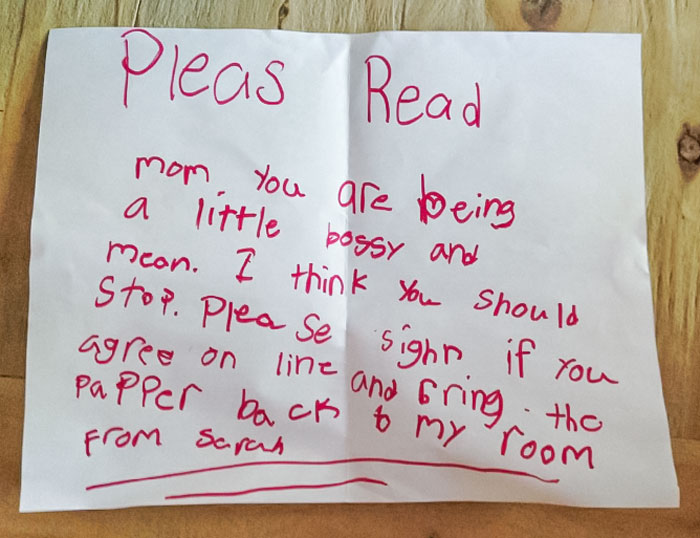 Pleas Read
mom. you are being
a little bossy and
mean. I think you should
Stop. Please sighn if you
agree on line and bring the
papper back to my room
From Sarah